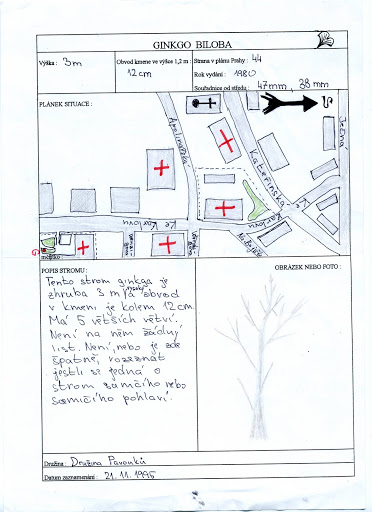 GINKGO BILOBA
Výška : 3m
Obvod kmene ve výšce 1,2 m :
12cm
Strana v plánu Prahy : 44
Rok vydání : 1980
Souřadnice od středu :
47mm, 38mm
PLÁNEK SITUACE :
Apolinářská
Kateřinská
Ječná
Ke Karlovu
Ke Karlovu
Na Bojišti
měřítko
POPIS STROMU :
Tento strom ginkga je
zhruba 3 m vysoký a obvod
v kmeni je kolem 12cm
Má 5 větších větví.
Není na něm žádný
list. Není, nebo je zde
špatně, rozeznat
jestli se jedná o
strom samčího nebo
samičího pohlaví.
OBRÁZEK NEBO FOTO :
Družina : Družina Pavouků
Datum zaznamenání : 21. 11. 1995